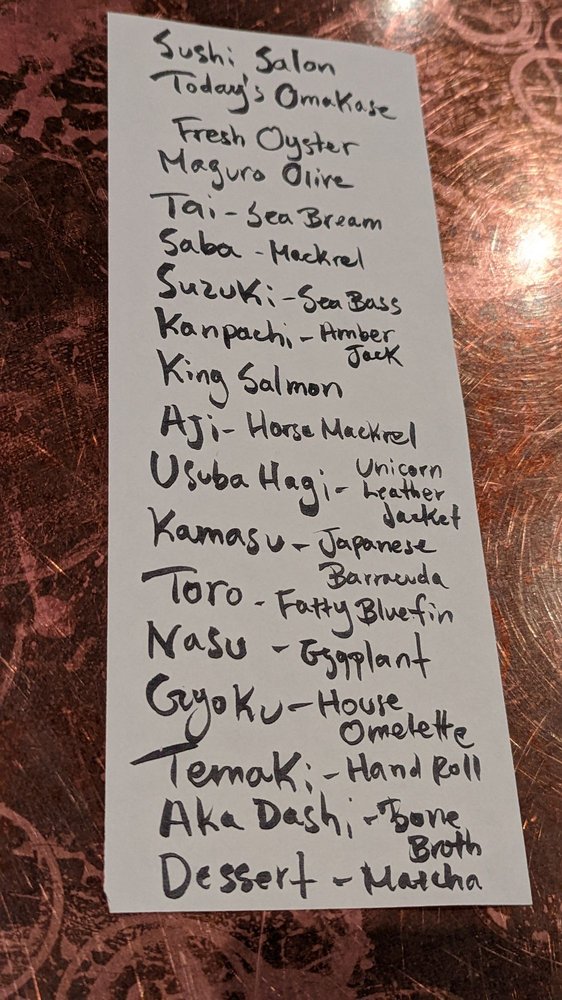 Sushi Salon
Today's Omakase
Fresh Oyster
Maguro Olive
Tai - Sea Bream
Saba - Mackrel
Suzuki - Sea Bass
Kanpachi - Amber
Jack
King Salmon
Aji - Horse Mackrel
Usuba Hagi - Unicorn
Leather
Jacket
Kamasu - Japanese
Barracuda
Toro - Fatty Bluefin
Nasu - Eggplant
Gyoku - House
Omelette
Temaki - Hand Roll
Aka Dashi - Bone
Broth
Dessert - Matcha